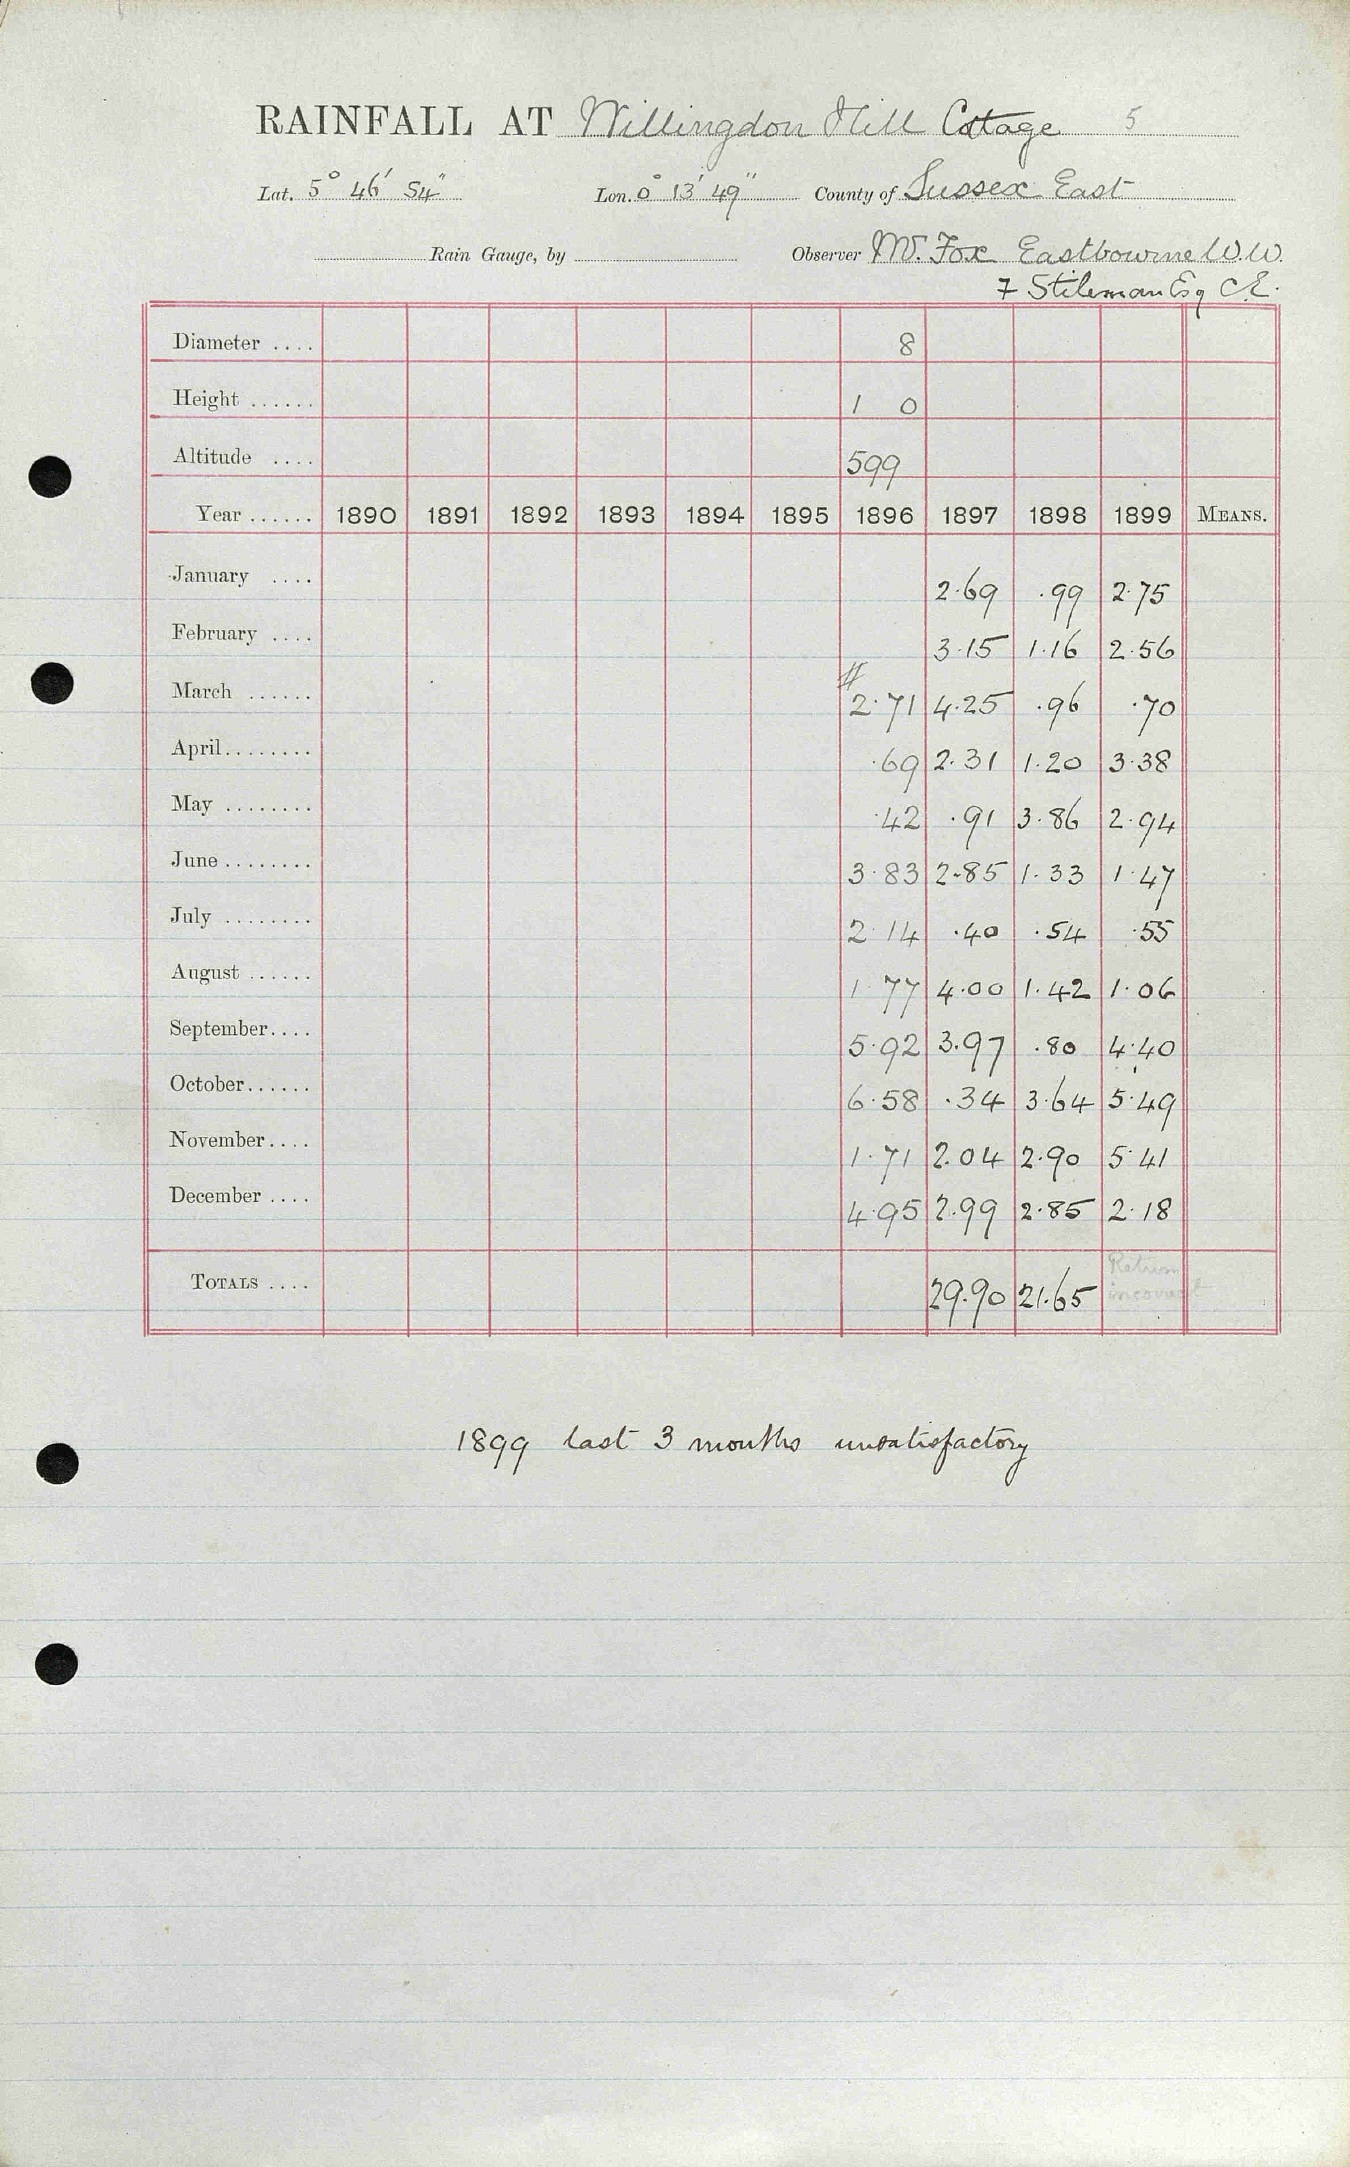 RAINFALL AT Willingdon Hill Cottage 5
Lat. 5° 46' 54" Lon. 0° 13' 49" County of Sussex East
Rain Gauge, by Observer W. Fox Eastbourne W.W.
F Stileman Esq C.E.
Diameter .... 8
Height ...... 1 0
Altitude .... 599
Year ...... 1890 1891 1892 1893 1894 1895 1896 1897 1898 1899 MEANS.
January .... 2.69 .99 2.75
February .... 3.15 1.16 2.56
#
March ...... 2.71 4.25 .96 .70
April........ .69 2.31 1.20 3.38
May ........ .42 .91 3.86 2.94
June ........ 3.83 2.85 1.33 1.47
July ........ 2.14 .40 .54 .55
August ...... 1.77 4.00 1.42 1.06
September.... 5.92 3.97 .80 4.40
October...... 6.58 .34 3.64 5.49
November.... 1.71 2.04 2.90 5.41
December .... 4.95 2.99 2.85 2.18
TOTALS .... 29.90 21.65 Return
incorrect
1899 last 3 months unsatisfactory